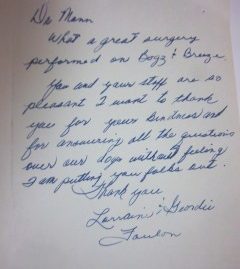 Dr Mann
What a great surgery
performed on Bogz & Breeze
You and your staff are so
pleasant I want to thank
you for your kindness and
for answering all the questions
over our dogs without feeling
I am putting you folks out.
Thank you
Lorrain & Geordie
Foulon